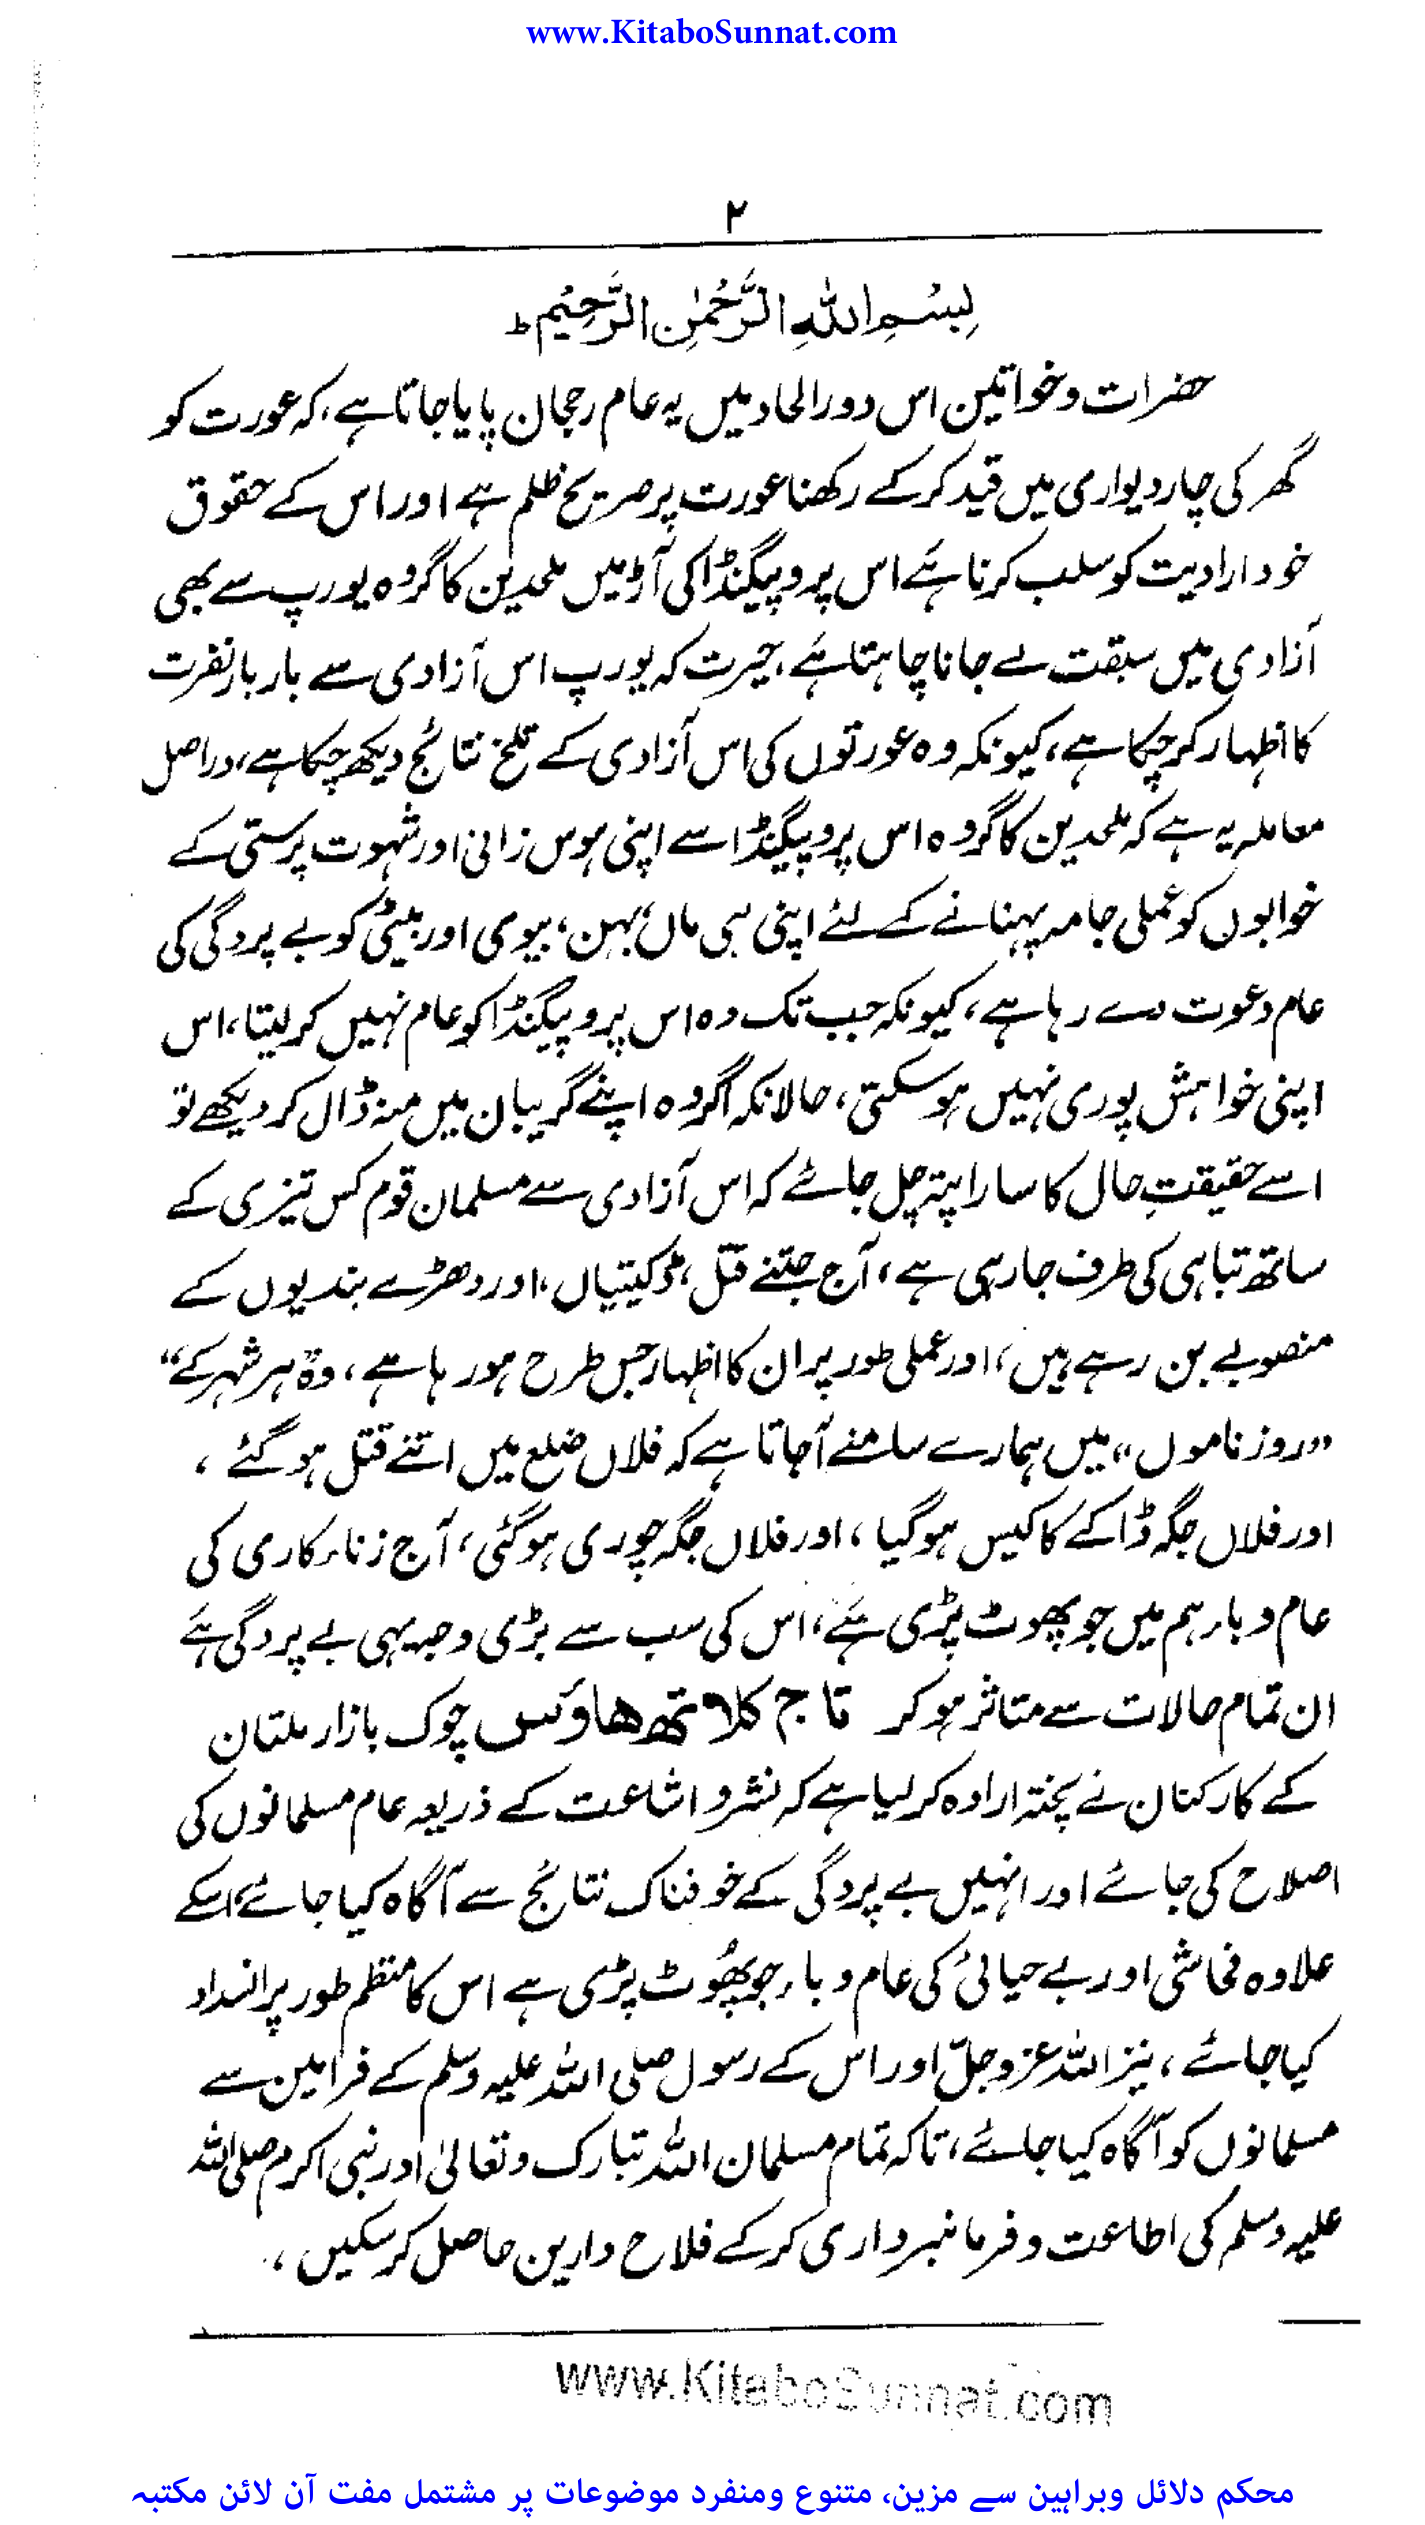 www.KitaboSunnat.com
۲
بِسْمِ اللّٰهِ الرَّحْمٰنِ الرَّحِيْمِ ط
حضرات و خواتین اس دور الحاد میں یہ عام رجحان پایا جاتا ہے، کہ عورت کو
گھر کی چار دیواری میں قید کر کے رکھنا عورت پر صریح ظلم ہے اور اس کے حقوق
خود ارادیت کو سلب کرنا ہے اس پروپیگنڈا کی آڑ میں ملحدین کا گروہ یورپ سے بھی
آزادی میں سبقت لے جانا چاہتا ہے، حیرت کہ یورپ اس آزادی سے بار بار نفرت
کا اظہار کر چکا ہے، کیونکہ وہ عورتوں کی اس آزادی کے تلخ نتائج دیکھ چکا ہے، دراصل
معاملہ یہ ہے کہ ملحدین کا گروہ اس پروپیگنڈا سے اپنی ہوس رانی اور شہوت پرستی کے
خوابوں کو عملی جامہ پہنانے کے لئے اپنی ہی ماں، بہن، بیوی اور بیٹی کو بے پردگی کی
عام دعوت دے رہا ہے، کیونکہ جب تک وہ اس پروپیگنڈا کو عام نہیں کر لیتا، اس
اپنی خواہش پوری نہیں ہو سکتی، حالانکہ اگر وہ اپنے گریبان میں منہ ڈال کر دیکھے تو
اسے حقیقتِ حال کا سارا پتہ چل جائے کہ اس آزادی سے مسلمان قوم کس تیزی کے
ساتھ تباہی کی طرف جا رہی ہے، آج جتنے قتل، ڈکیتیاں، اور دھڑے بندیوں کے
منصوبے بن رہے ہیں، اور عملی طور پر ان کا اظہار جس طرح ہو رہا ہے، وہ ہر شہر کے“
”روزناموں“ میں ہمارے سامنے آ جاتا ہے کہ فلاں ضلع میں اتنے قتل ہو گئے،
اور فلاں جگہ ڈاکے کا کیس ہو گیا، اور فلاں جگہ چوری ہو گئی، آج زناء کاری کی
عام وبا ہم میں جو پھوٹ پڑی ہے، اس کی سب سے بڑی وجہ یہی بے پردگی ہے
ان تمام حالات سے متاثر ہو کر تاج کلاتھ ھاؤس چوک بازار ملتان
کے کارکنان نے پختہ ارادہ کر لیا ہے کہ نشر و اشاعت کے ذریعہ عام مسلمانوں کی
اصلاح کی جائے اور انہیں بے پردگی کے خوفناک نتائج سے آگاہ کیا جائے، اسکے
علاوہ فحاشی اور بے حیائی کی عام وباء جو پھُوٹ پڑی ہے اس کا منظم طور پر انسداد
کیا جائے، نیز اللہ عزوجلّ اور اس کے رسول صلی اللہ علیہ وسلم کے فرامین سے
مسلمانوں کو آگاہ کیا جائے، تاکہ تمام مسلمان اللہ تبارک و تعالیٰ اور نبی اکرم صلی اللہ
علیہ وسلم کی اطاعت و فرمانبرداری کر کے فلاح دارین حاصل کر سکیں،
www.KitaboSunnat.com
محکم دلائل وبراہین سے مزین، متنوع ومنفرد موضوعات پر مشتمل مفت آن لائن مکتبہ